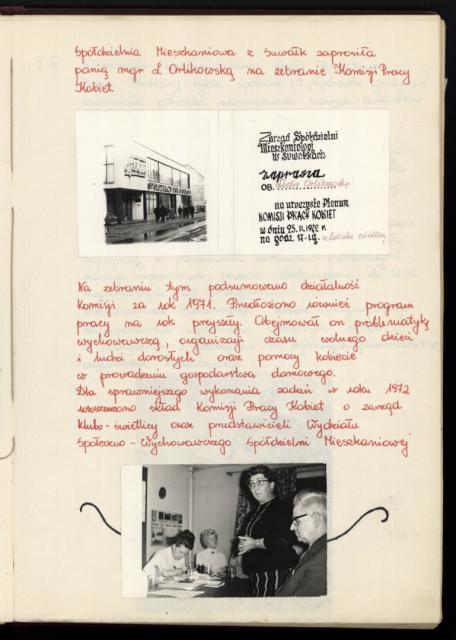 Spółdzielnia Mieszkaniowa z Suwałk zaprosiła
panią mgr L. Orlikowską na zebranie Komisji Pracy
Kobiet.
Zarząd Spółdzielni
Mieszkaniowej
w Suwałkach
zaprasza
OB.
na uroczyste Plenum
KOMISJI PRACY KOBIET
w dniu 25.II.1972 r.
na godz. 17-tą.
Na zebraniu tym podsumowano działalność
Komisji za rok 1971. Przedłożono również program
pracy na rok przyszły. Obejmował on problematykę
wychowawczą, organizacji czasu wolnego dzieci
i ludzi dorosłych oraz pomocy kobiecie
w prowadzeniu gospodarstwa domowego.
Dla sprawniejszego wykonania zadań w roku 1972
rozszerzono skład Komisji Pracy Kobiet o zarząd
klubo-świetlicy oraz przedstawicieli Wydziału
Społeczno-Wychowawczego Spółdzielni Mieszkaniowej